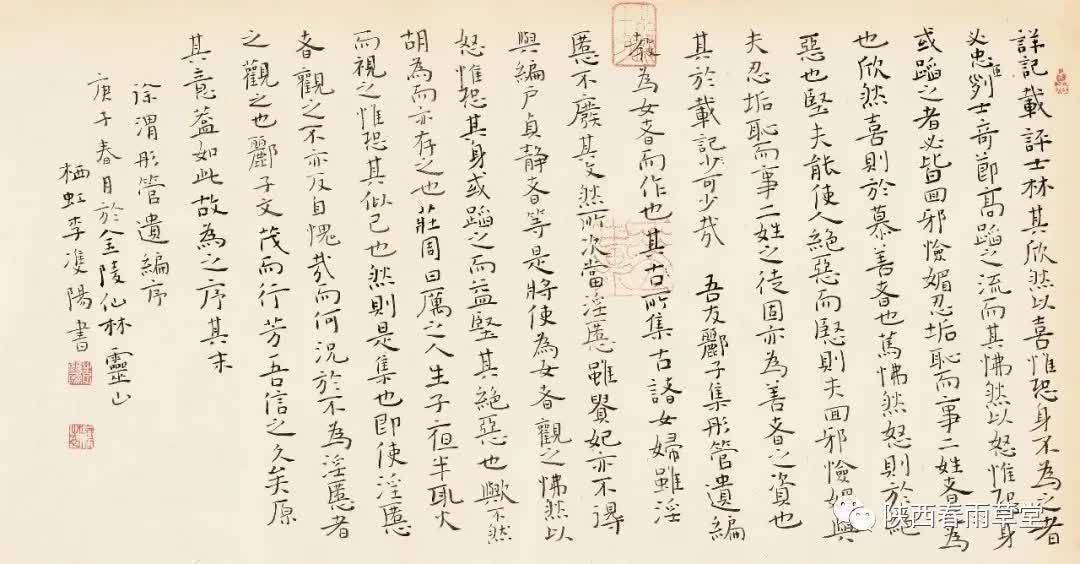 詳記載評士林其欣然以喜惟恐身不為之者
必忠臣劉士奇節高蹈之流而其怫然以怒惟恐身
或蹈之者必皆回邪憸媚忍垢恥而事二姓者為
也欣然喜則於慕善者也篤怫然怒則於絕
惡也堅夫能使人絕惡而堅則夫回邪憸媚與
夫忍垢恥而事二姓之徒固亦為善者之資也
其於載記少可少哉 吾友酈子集彤管遺編
為女者而作也其古所集古諸女婦雖淫
慝不廢其文然所次當淫慝雖妃亦不得
與編戶貞靜者等是將使為女者觀之怫然以
怒惟恐其身或蹈之而益堅其絕惡也歟不然
胡為而亦存之也莊周曰厲之人生子夜半取火
而視之惟恐其似己也然則是集也即使淫慝
者觀之不亦反自愧哉而何況於不為淫慝者
之觀之也酈子文茂而行芳吾信之久矣原
其意蓋如此故為之序其末
徐渭彤管遺編序
庚子春月於金陵仙林靈山
栖虹李雙陽書
陕西春雨草堂